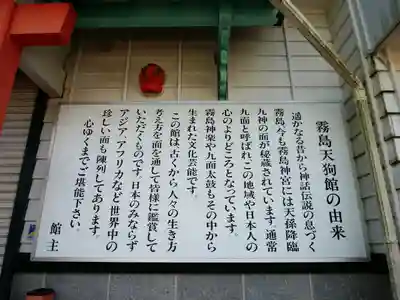 霧島天狗館の由来
遥かなる昔から神話伝説の息づく
霧島今も霧島神宮には天孫降臨
九神の面が秘蔵されています。通常
九面と呼ばれ、この地域や日本人の
心のよりどころとなっています。
霧島神楽や九面太鼓もその中から
生まれた文化芸能です。
この館は、古くから人々の生き方
考え方を面を通して皆様に鑑賞して
いただくものです。日本のみならず
アジア、アフリカなど世界中の
珍しい面も陳列してあります。
心ゆくまでご堪能下さい。
館主